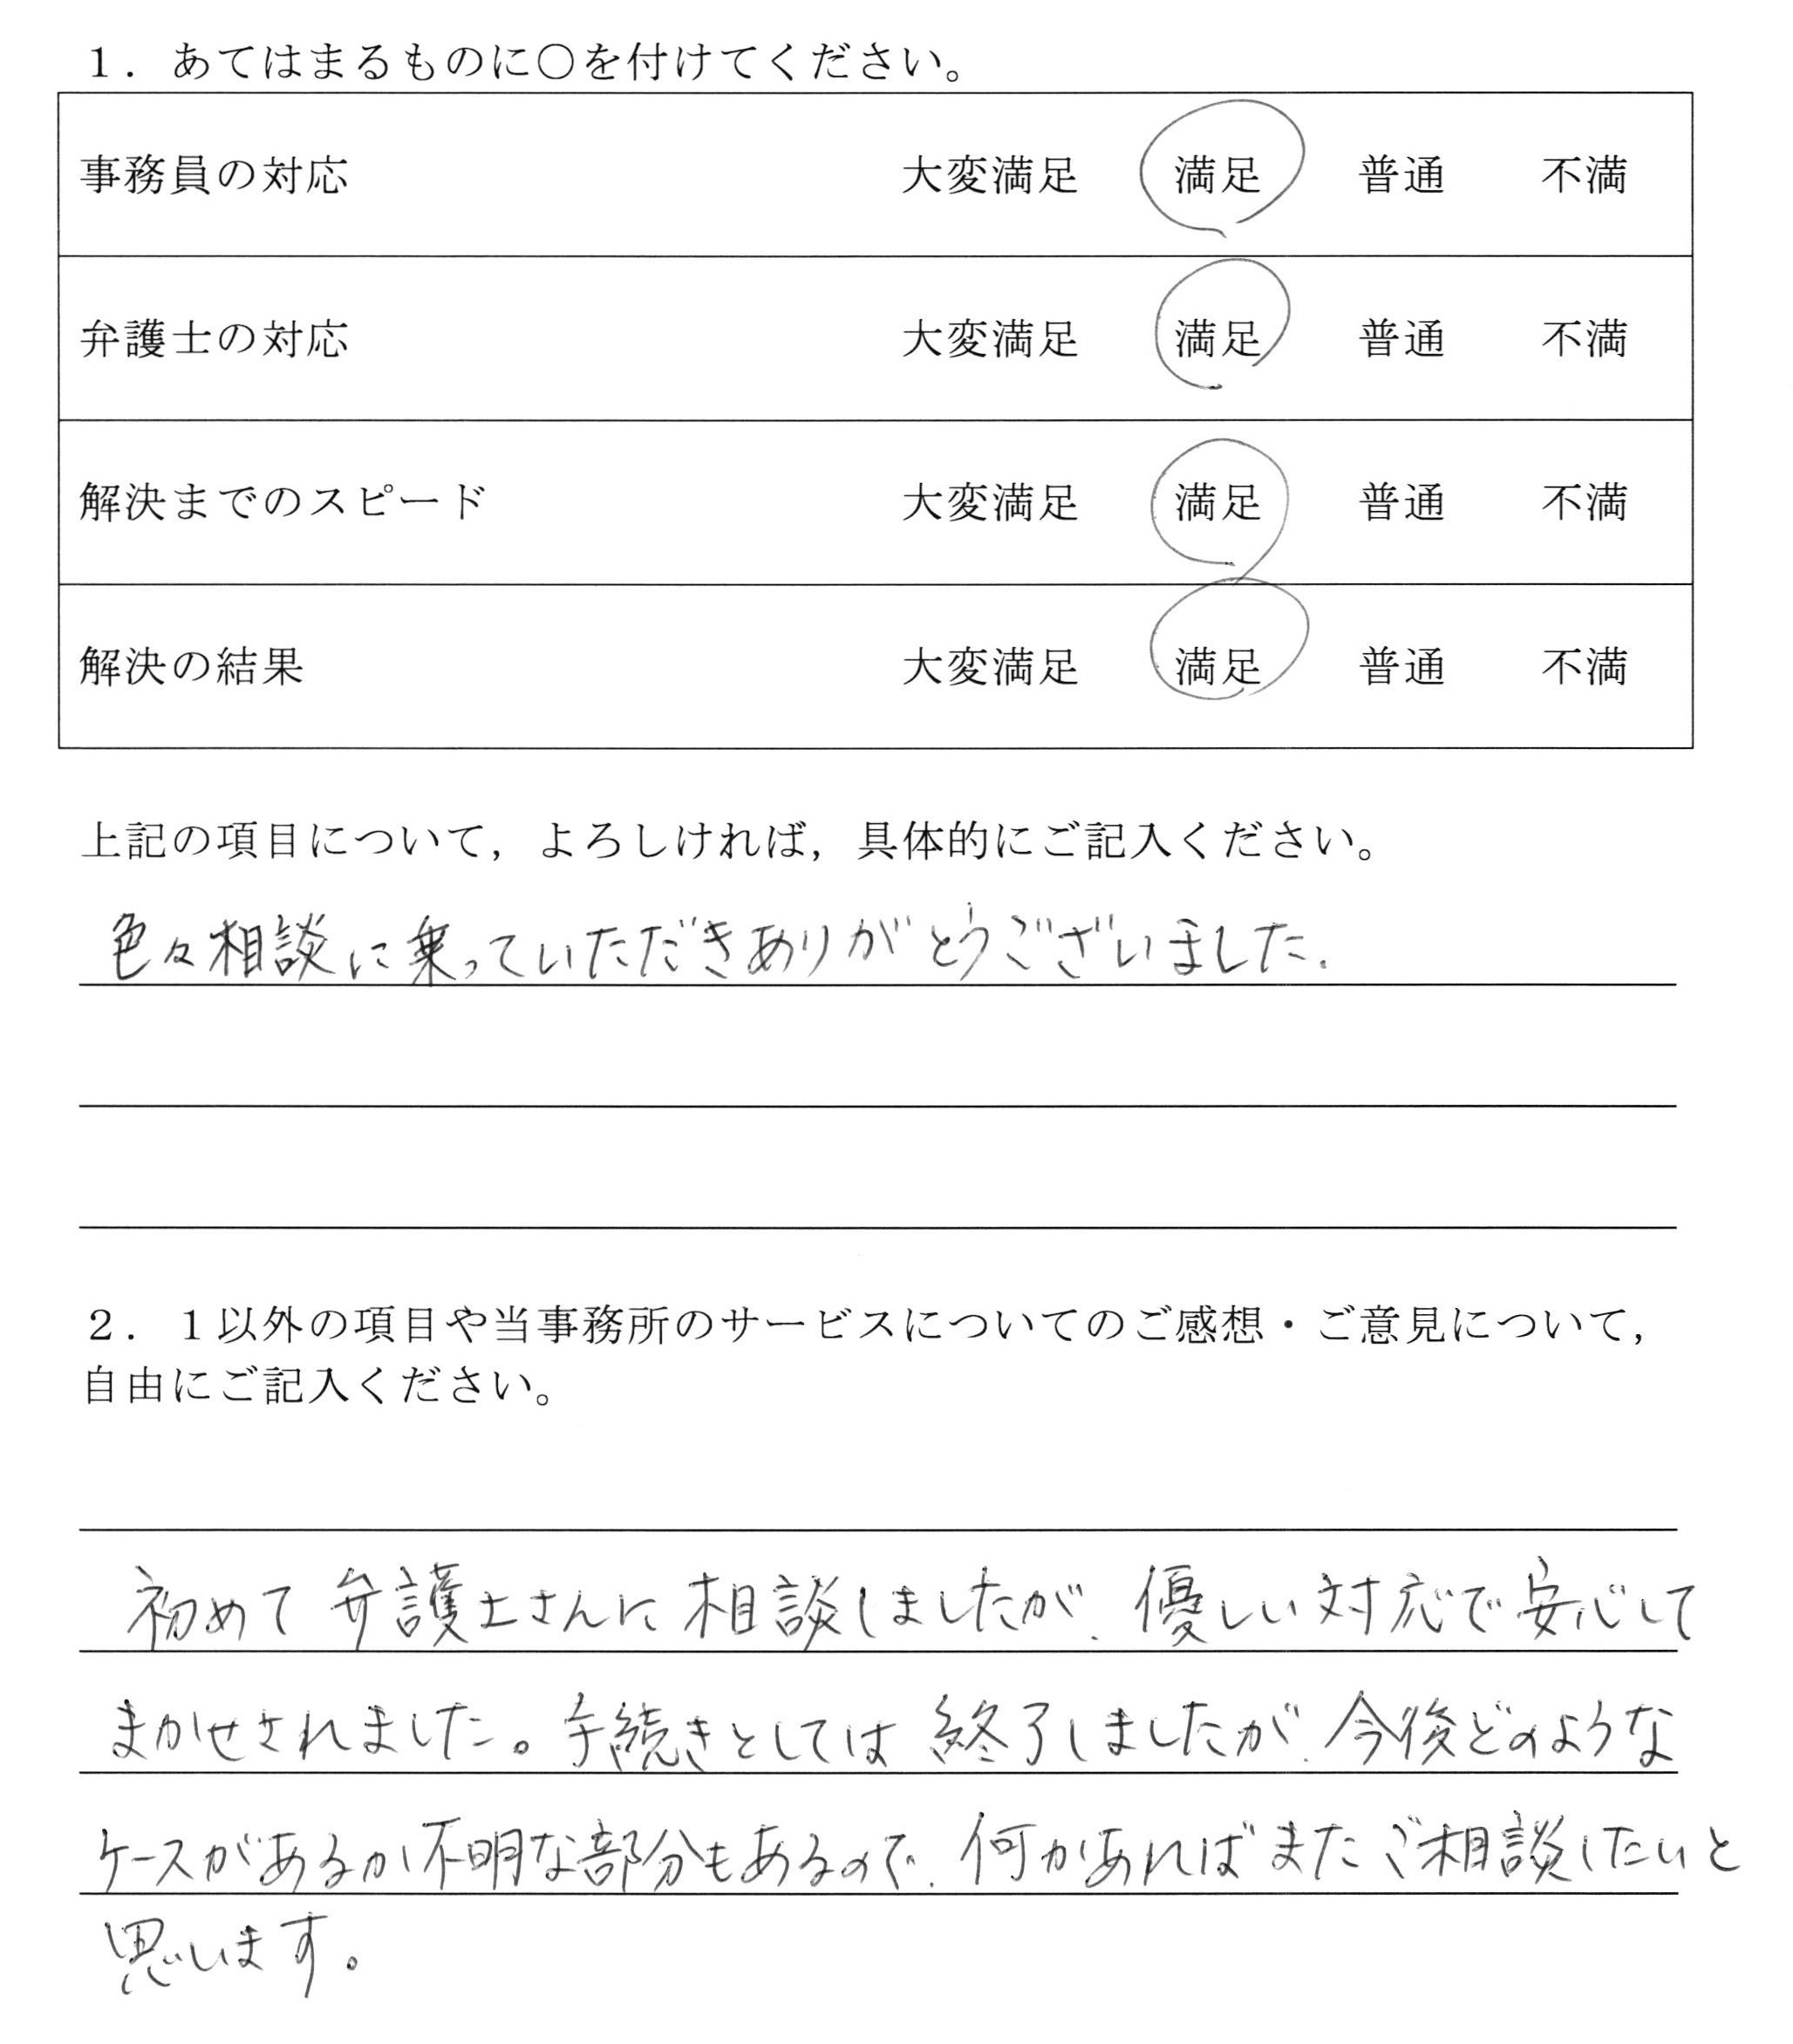 １．あてはまるものに○を付けてください。
事務員の対応 大変満足 満足 普通 不満
弁護士の対応 大変満足 満足 普通 不満
解決までのスピード 大変満足 満足 普通 不満
解決の結果 大変満足 満足 普通 不満
上記の項目について，よろしければ，具体的にご記入ください。
色々相談に乗っていただきありがとうございました.
２．１以外の項目や当事務所のサービスについてのご感想・ご意見について，
自由にご記入ください。
初めて弁護士さんに相談しましたが、優しい対応で安心して
まかせされました。手続きとしては終了しましたが、今後どのような
ケースがあるか不明な部分もあるので、何かあればまたご相談したいと
思います。